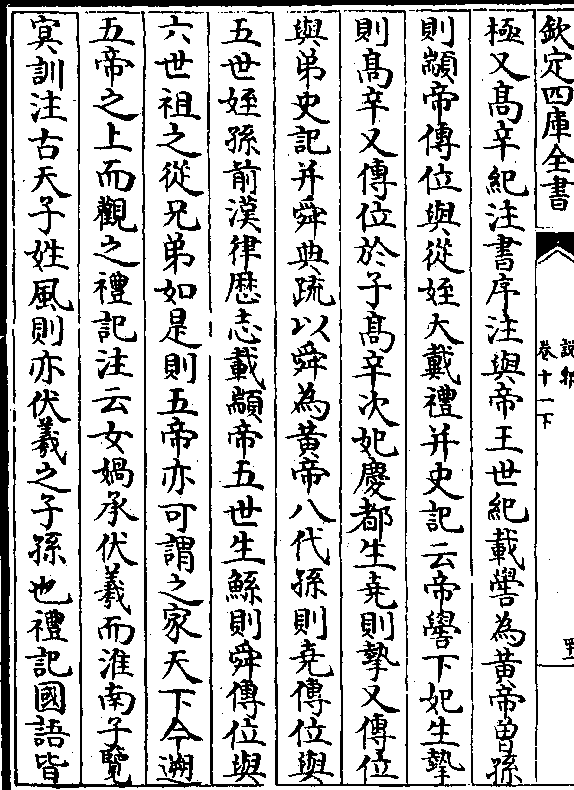 欽定四庫全書
說郛
卷十一下
極又髙辛紀注書序注與帝王世紀載嚳為黄帝曽孫
則顓帝傳位與從姪大戴禮并史記云帝嚳下妃生摯
則髙辛又傳位於子髙辛次妃慶都生堯則摯又傳位
與弟史記并舜典疏以舜為黄帝八代孫則堯傳位與
五世姪孫前漢律厯志載顓帝五世生鯀則舜傳位與
六世祖之從兄弟如是則五帝亦可謂之家天下今遡
五帝之上而觀之禮記注云女媧承伏羲而淮南子覽
㝠訓注古天子姓風則亦伏羲之子孫也禮記國語皆